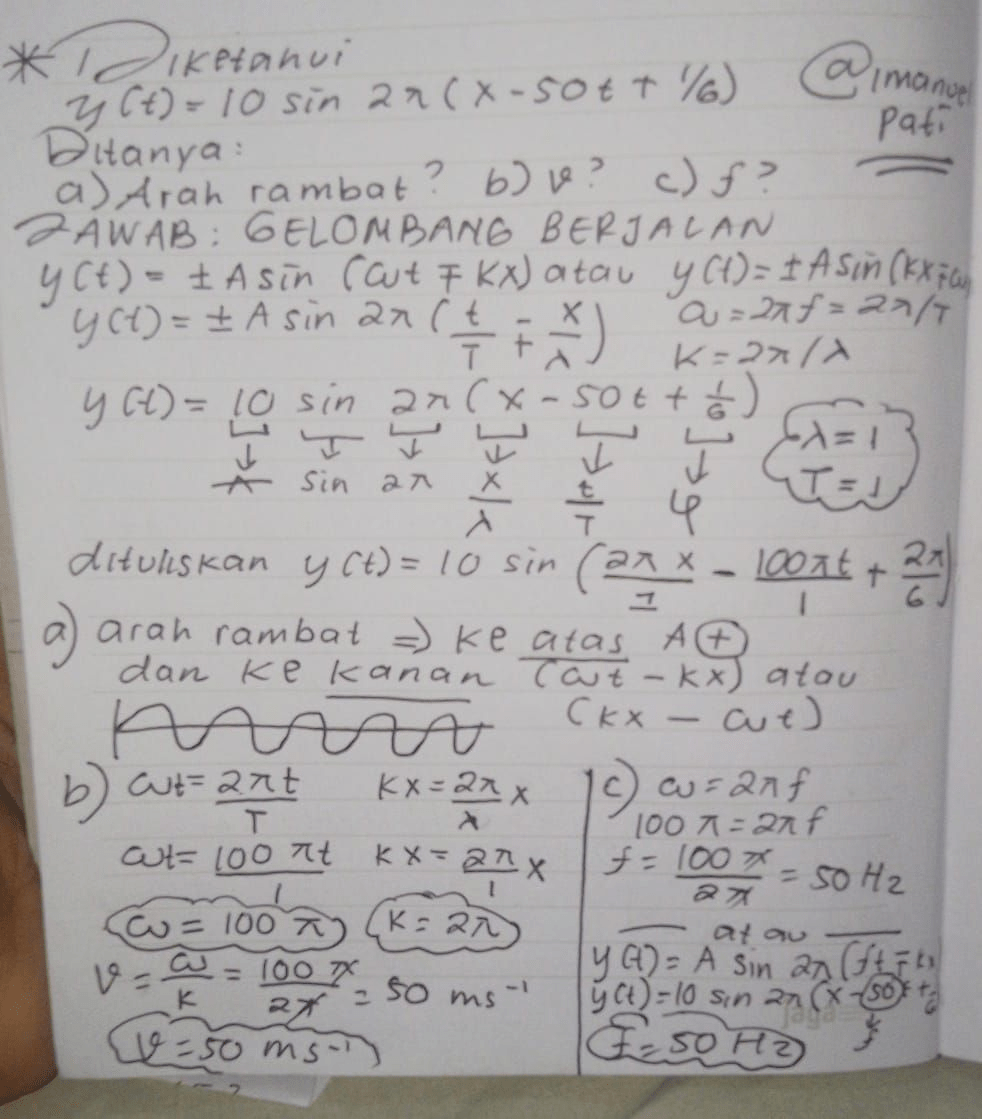 * 1 Diketahui
y(t) = 10 sin 2π(x - 50t + 1/6)
@imanuel
Pati
Ditanya:
a) Arah rambat? b) v? c) f?
JAWAB: GELOMBANG BERJALAN
y(t) = ± A sin (ωt ∓ kx) atau y(t) = ± A sin (kx ∓ ωt)
y(t) = ± A sin 2π (t/T ∓ x/λ)
ω = 2πf = 2π/T
K = 2π/λ
y(t) = 10 sin 2π (x - 50t + 1/6)
↓ ↓ ↓ ↓ ↓ ↓
A sin 2π x/λ t/T φ
λ = 1
T = 1
dituliskan y(t) = 10 sin (2πx/1 - 100πt/1 + 2π/6)
a) arah rambat ⇒ ke atas A ⊕
dan ke kanan (ωt - kx) atau
(kx - ωt)
b) ωt = 2πt/T kx = 2π/λ x
ωt = 100πt/1 kx = 2π/1 x
ω = 100π K = 2π
v = ω/K = 100π/2π = 50 ms⁻¹
v = 50 ms⁻¹
c) ω = 2πf
100π = 2πf
f = 100π/2π = 50 Hz
atau
y(t) = A sin 2π(ft ∓ kx
y(t) = 10 sin 2π(x - 50t + 1/6
↓
f
f = 50 Hz